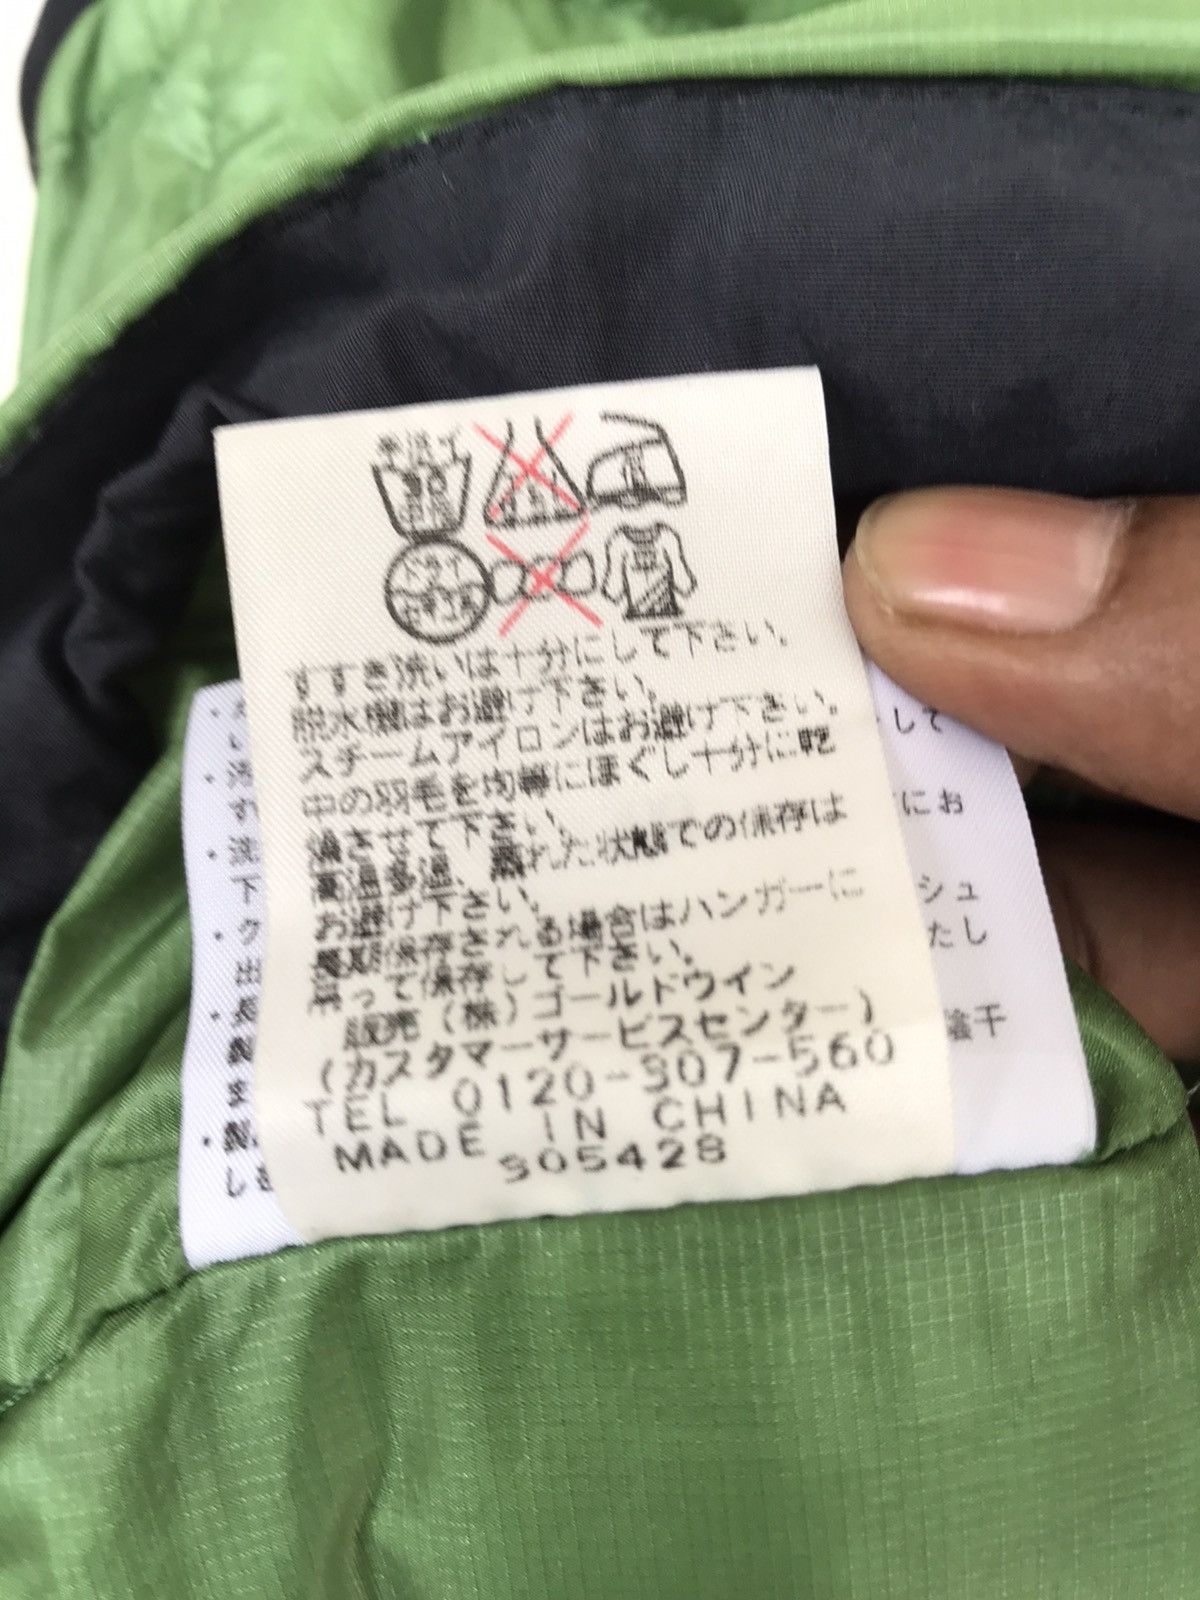 手洗イ
30
すすき洗いは十分にして下さい。
脱水機はお避け下さい。
スチームアイロンはお避け下さい。
中の羽毛を均等にほぐし十分に乾
燥させて下さい。
高温多湿、濡れた状態での保存は
お避け下さい。
長期保存される場合はハンガーに
吊って保存して下さい。
販売(株)ゴールドウイン
(カスタマーサービスセンター)
TEL 0120-307-560
MADE IN CHINA
S05428
して
にお
シュ
たし
陰干